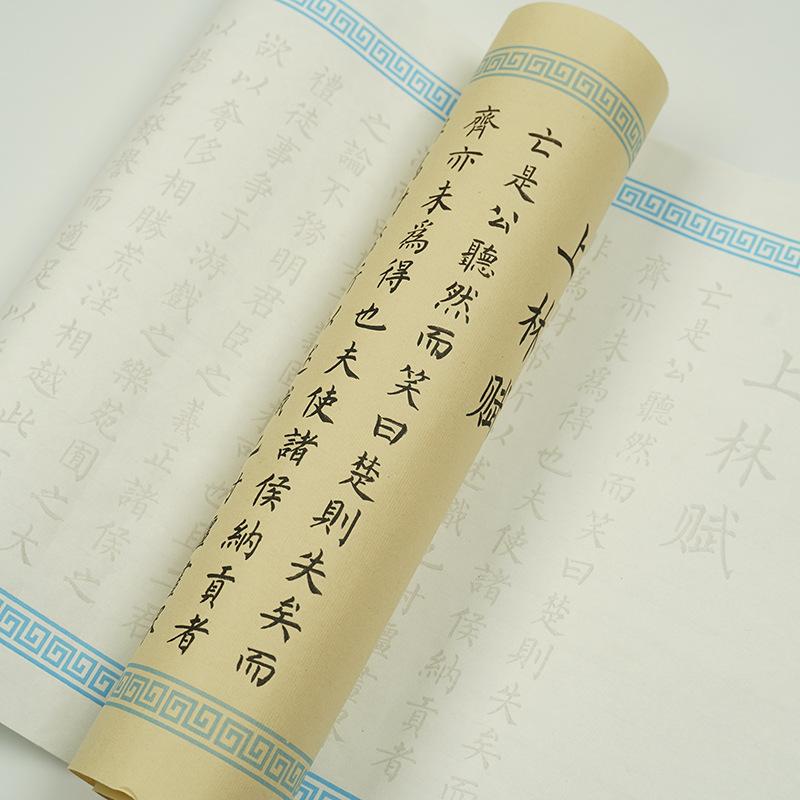 上林赋
亡是公聽然而笑曰楚則失矣而
齊亦未爲得也夫使諸侯納貢者
上林赋
亡是公聽然而笑曰楚則失矣而
齊亦未爲得也夫使諸侯納貢者
非爲所以述職也封疆
之論不務明君臣之義正諸侯之
禮徒事争于游戲之樂苑囿之大
欲以奢侈相勝荒淫相越此
以揚名發譽而適足以